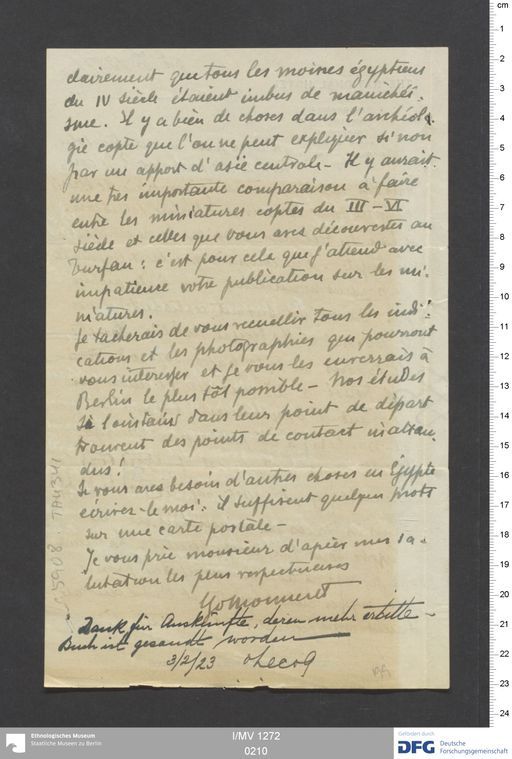 clairement que tous les moines égyptiens
du IV siècle étaient imbus de manichéi-
sme. Il y a bien de choses dans l'archéolo
gie copte que l'on ne peut expliquer si non
par un apport d'asie centrale - Il y aurait
une tres importante comparaison à faire
entre les miniatures coptes du III - VI
siècle et celles que vous avez découvertes au
Turfan: c'est pour cela que j'attend avec
impatience votre publication sur les mi-
niatures.
Je tacherais de vous recueillir tous les indi-
cations et les photographies qui pourront
vous interesser et je vous les enverrais à
Berlin le plus tôt possible - Nos études
si lointains dans leur point de départ
trouvent des points de contact inatten-
dus!
Si vous aves besoin d'autres choses en Egypte
ecrivez-le moi: il suffisent quelques mots
sur une carte postale -
Je vous prie monsieur d'agréer mes sa-
lutation les plus respectueuses
Monneret
Dank für Auskünfte, deren mehr erbitte -
Buch ist gesandt worden
3/2/23 vLecoq
TA 4341
I/MV 1272
0210
Ethnologisches Museum
Staatliche Museen zu Berlin
Gefördert durch
DFG Deutsche
Forschungsgemeinschaft
cm
1
2
3
4
5
6
7
8
9
10
11
12
13
14
15
16
17
18
19
20
21
22
23
24